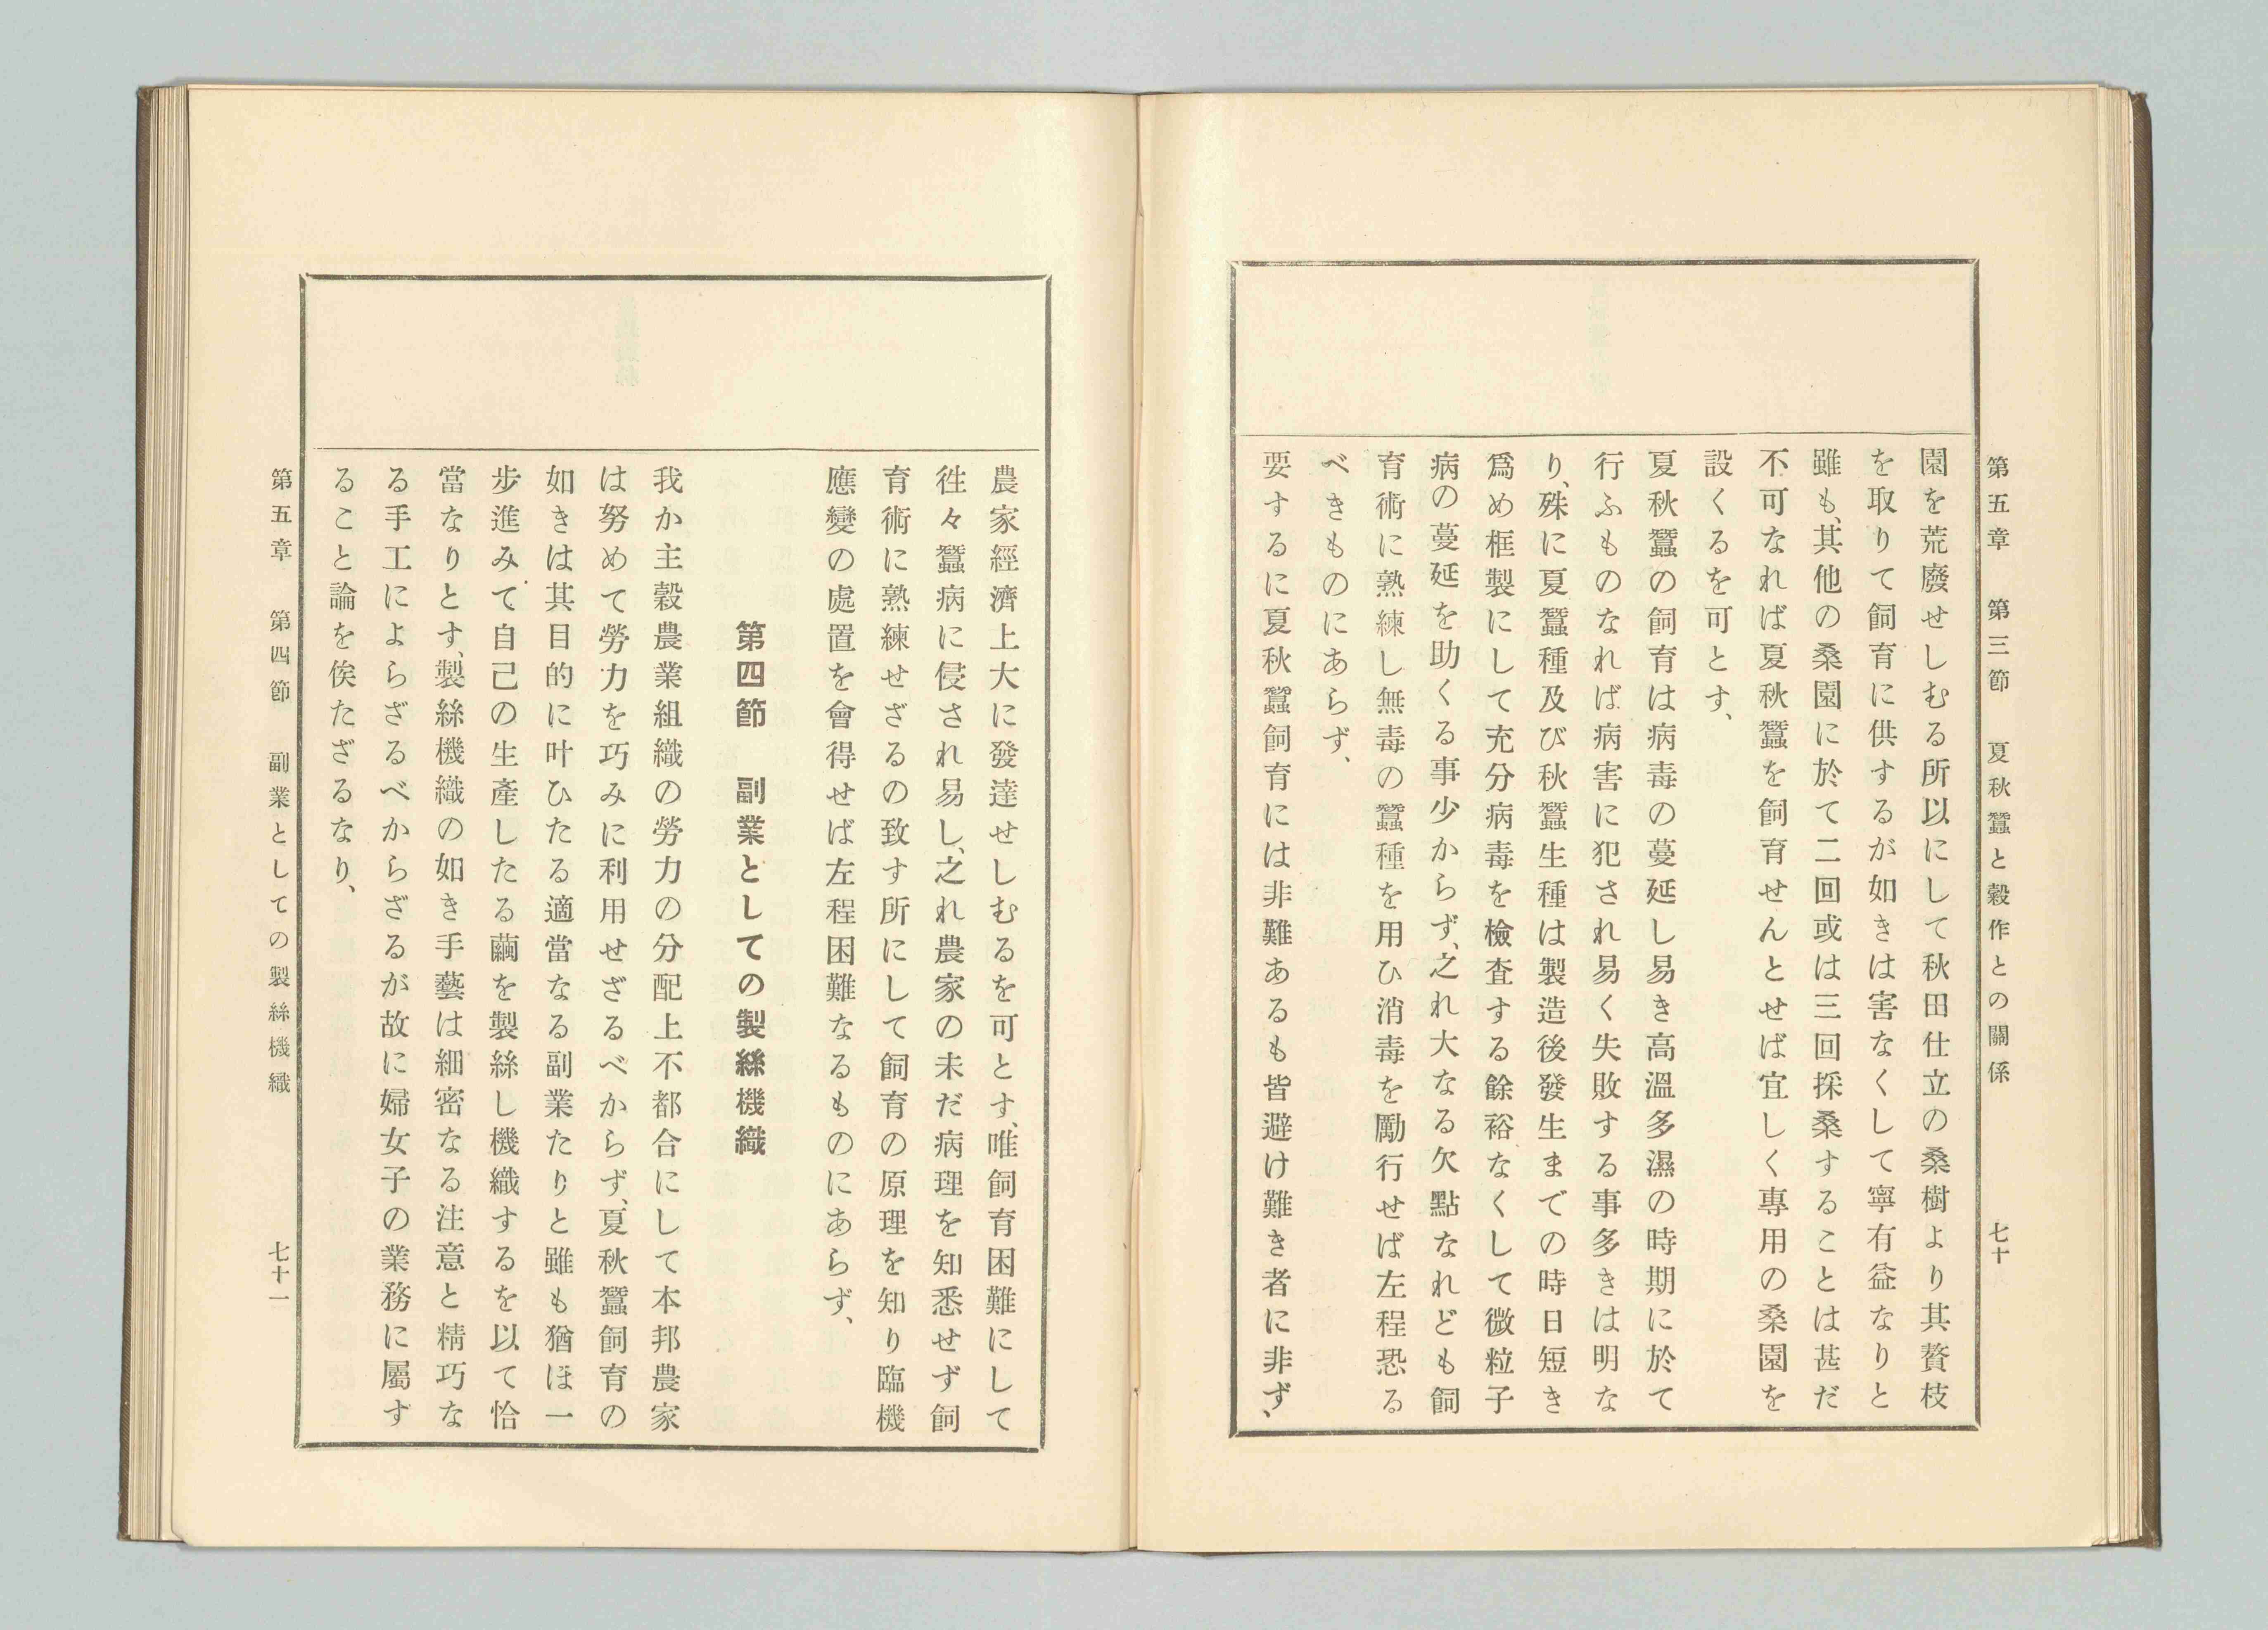 第五章　第三節　夏秋蠶と穀作との關係　七十
園を荒廢せしむる所以にして秋田仕立の桑樹より其贅枝
を取りて飼育に供するが如きは害なくして寧有益なりと
雖も、其他の桑園に於て二回或は三回採桑することは甚だ
不可なれば夏秋蠶を飼育せんとせば宜しく專用の桑園を
設くるを可とす、
夏秋蠶の飼育は病毒の蔓延し易き高溫多濕の時期に於て
行ふものなれば病害に犯され易く失敗する事多きは明な
り、殊に夏蠶種及び秋蠶生種は製造後發生までの時日短き
爲め框製にして充分病毒を檢査する餘裕なくして微粒子
病の蔓延を助くる事少からず、之れ大なる欠點なれども飼
育術に熟練し無毒の蠶種を用ひ消毒を勵行せば左程恐る
べきものにあらず、
要するに夏秋蠶飼育には非難あるも皆避け難き者に非ず、
農家經濟上大に發達せしむるを可とす、唯飼育困難にして
徃々蠶病に侵され易し、之れ農家の未だ病理を知悉せず飼
育術に熟練せざるの致す所にして飼育の原理を知り臨機
應變の處置を會得せば左程困難なるものにあらず、
第四節　副業としての製絲機織
我か主穀農業組織の勞力の分配上不都合にして本邦農家
は努めて勞力を巧みに利用せざるべからず、夏秋蠶飼育の
如きは其目的に叶ひたる適當なる副業たりと雖も猶ほ一
步進みて自己の生產したる繭を製絲し機織するを以て恰
當なりとす、製絲機織の如き手藝は細密なる注意と精巧な
る手工によらざるべからざるが故に婦女子の業務に屬す
ること論を俟たざるなり、
第五章　第四節　副業としての製絲機織　七十一